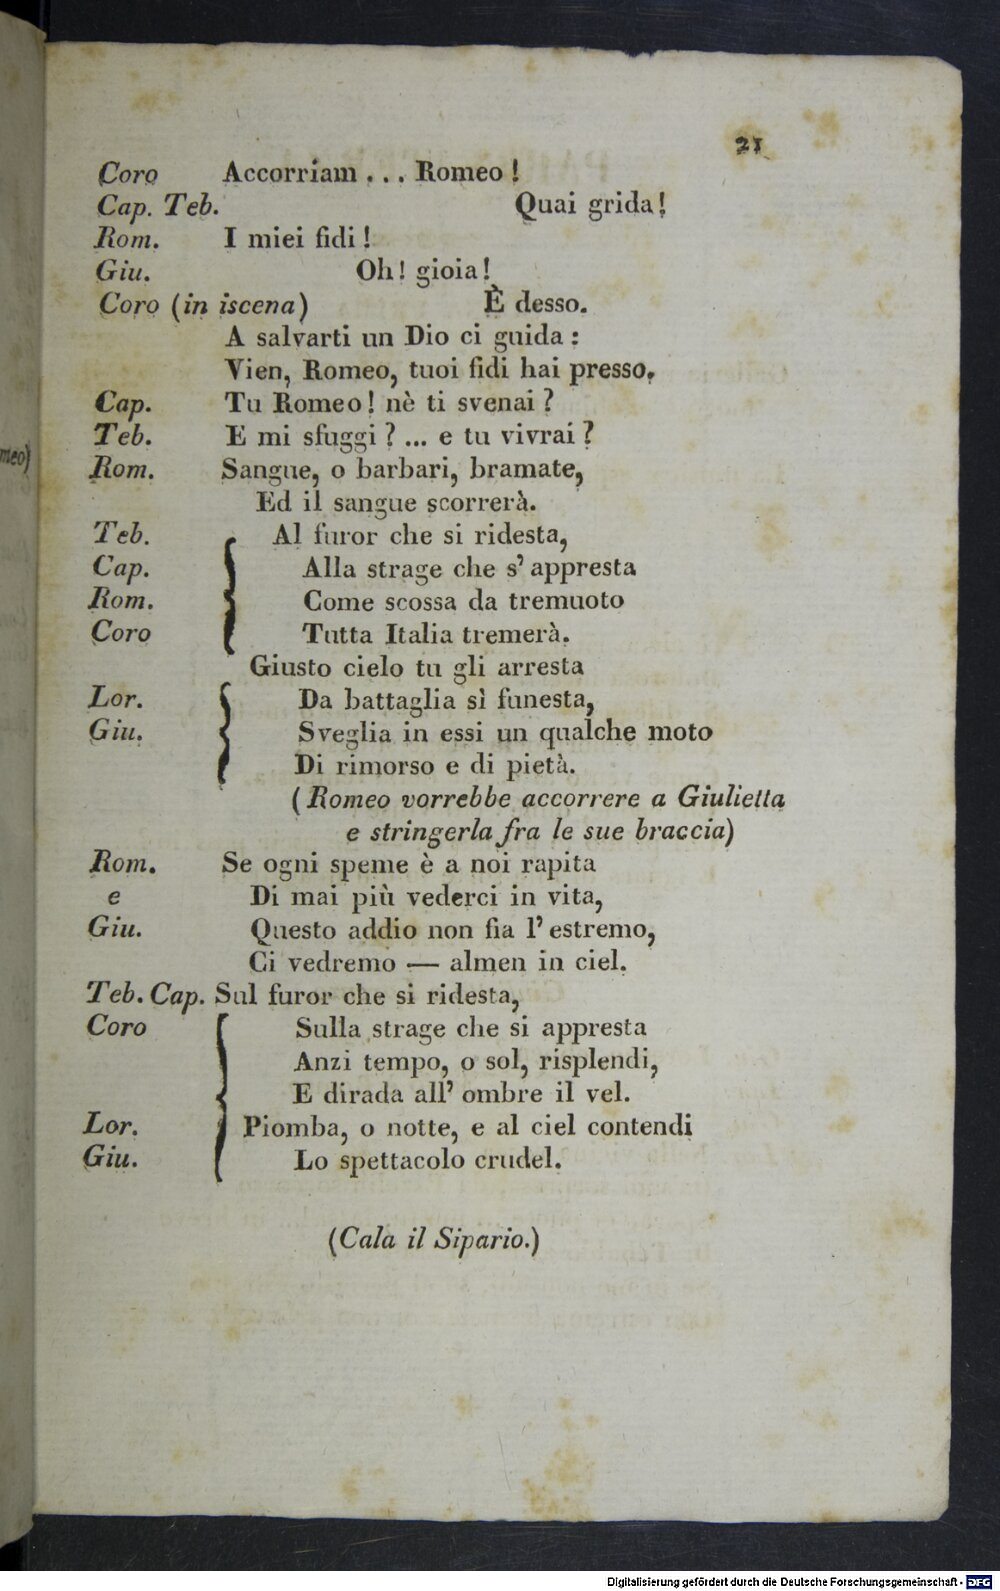 21
Coro Accorriam . . . Romeo !
Cap. Teb. Quai grida!
Rom. I miei fidi !
Giu. Oh! gioia!
Coro (in iscena) È desso.
A salvarti un Dio ci guida :
Vien, Romeo, tuoi fidi hai presso.
Cap. Tu Romeo! nè ti svenai ?
Teb. E mi sfuggi ? ... e tu vivrai ?
meo)
Rom. Sangue, o barbari, bramate,
Ed il sangue scorrerà.
Teb. Al furor che si ridesta,
Cap. Alla strage che s' appresta
Rom. Come scossa da tremuoto
Coro Tutta Italia tremerà.
Giusto cielo tu gli arresta
Lor. Da battaglia sì funesta,
Giu. Sveglia in essi un qualche moto
Di rimorso e di pietà.
(Romeo vorrebbe accorrere a Giulietta
e stringerla fra le sue braccia)
Rom. Se ogni speme è a noi rapita
e Di mai più vederci in vita,
Giu. Questo addio non fia l' estremo,
Ci vedremo — almen in ciel.
Teb. Cap. Sul furor che si ridesta,
Coro Sulla strage che si appresta
Anzi tempo, o sol, risplendi,
E dirada all' ombre il vel.
Lor. Piomba, o notte, e al ciel contendi
Giu. Lo spettacolo crudel.
(Cala il Sipario.)
Digitalisierung gefördert durch die Deutsche Forschungsgemeinschaft - DFG